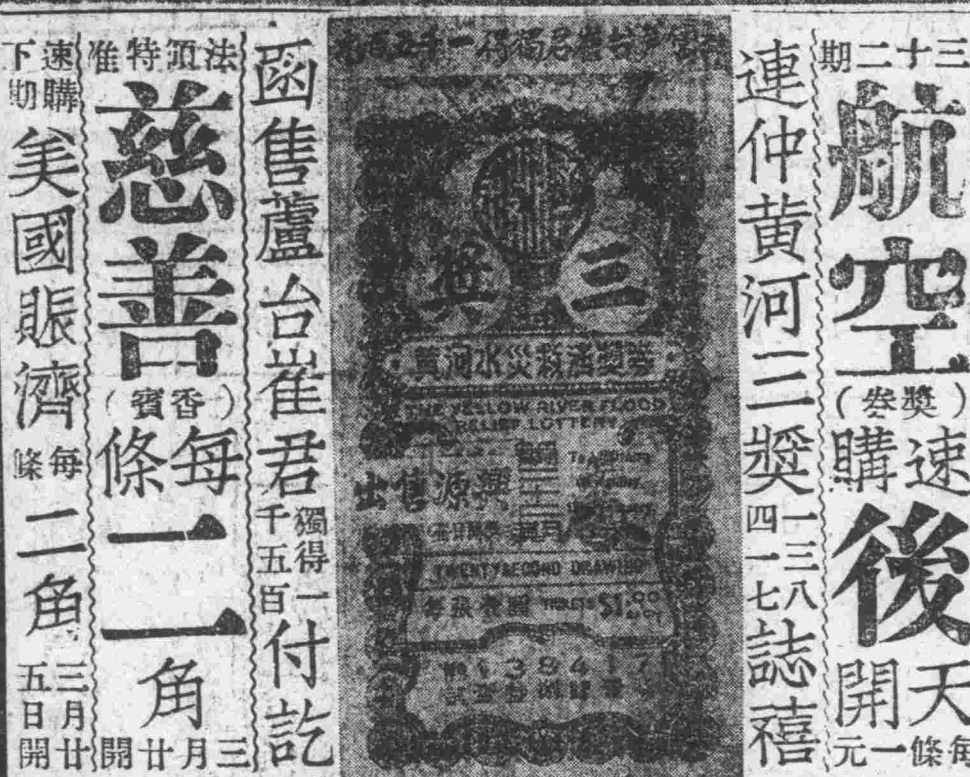 三十二期
航空
(獎券)
速購
後
天開
每條一元
連仲黃河三獎
一三八四一七
誌禧
獨得一千五百
三獎
黃河水災救濟獎券
THE YELLOW RIVER FLOOD
RELIEF LOTTERY
興源售出
TWENTYSECOND DRAWING
$1.00
138417
函售蘆台崔君
獨得一千五百
付訖
法領特准
慈善
(香賓)
每條
二
角
三月廿開
速購下期
美國賬濟
每條
二角
三月廿五日開